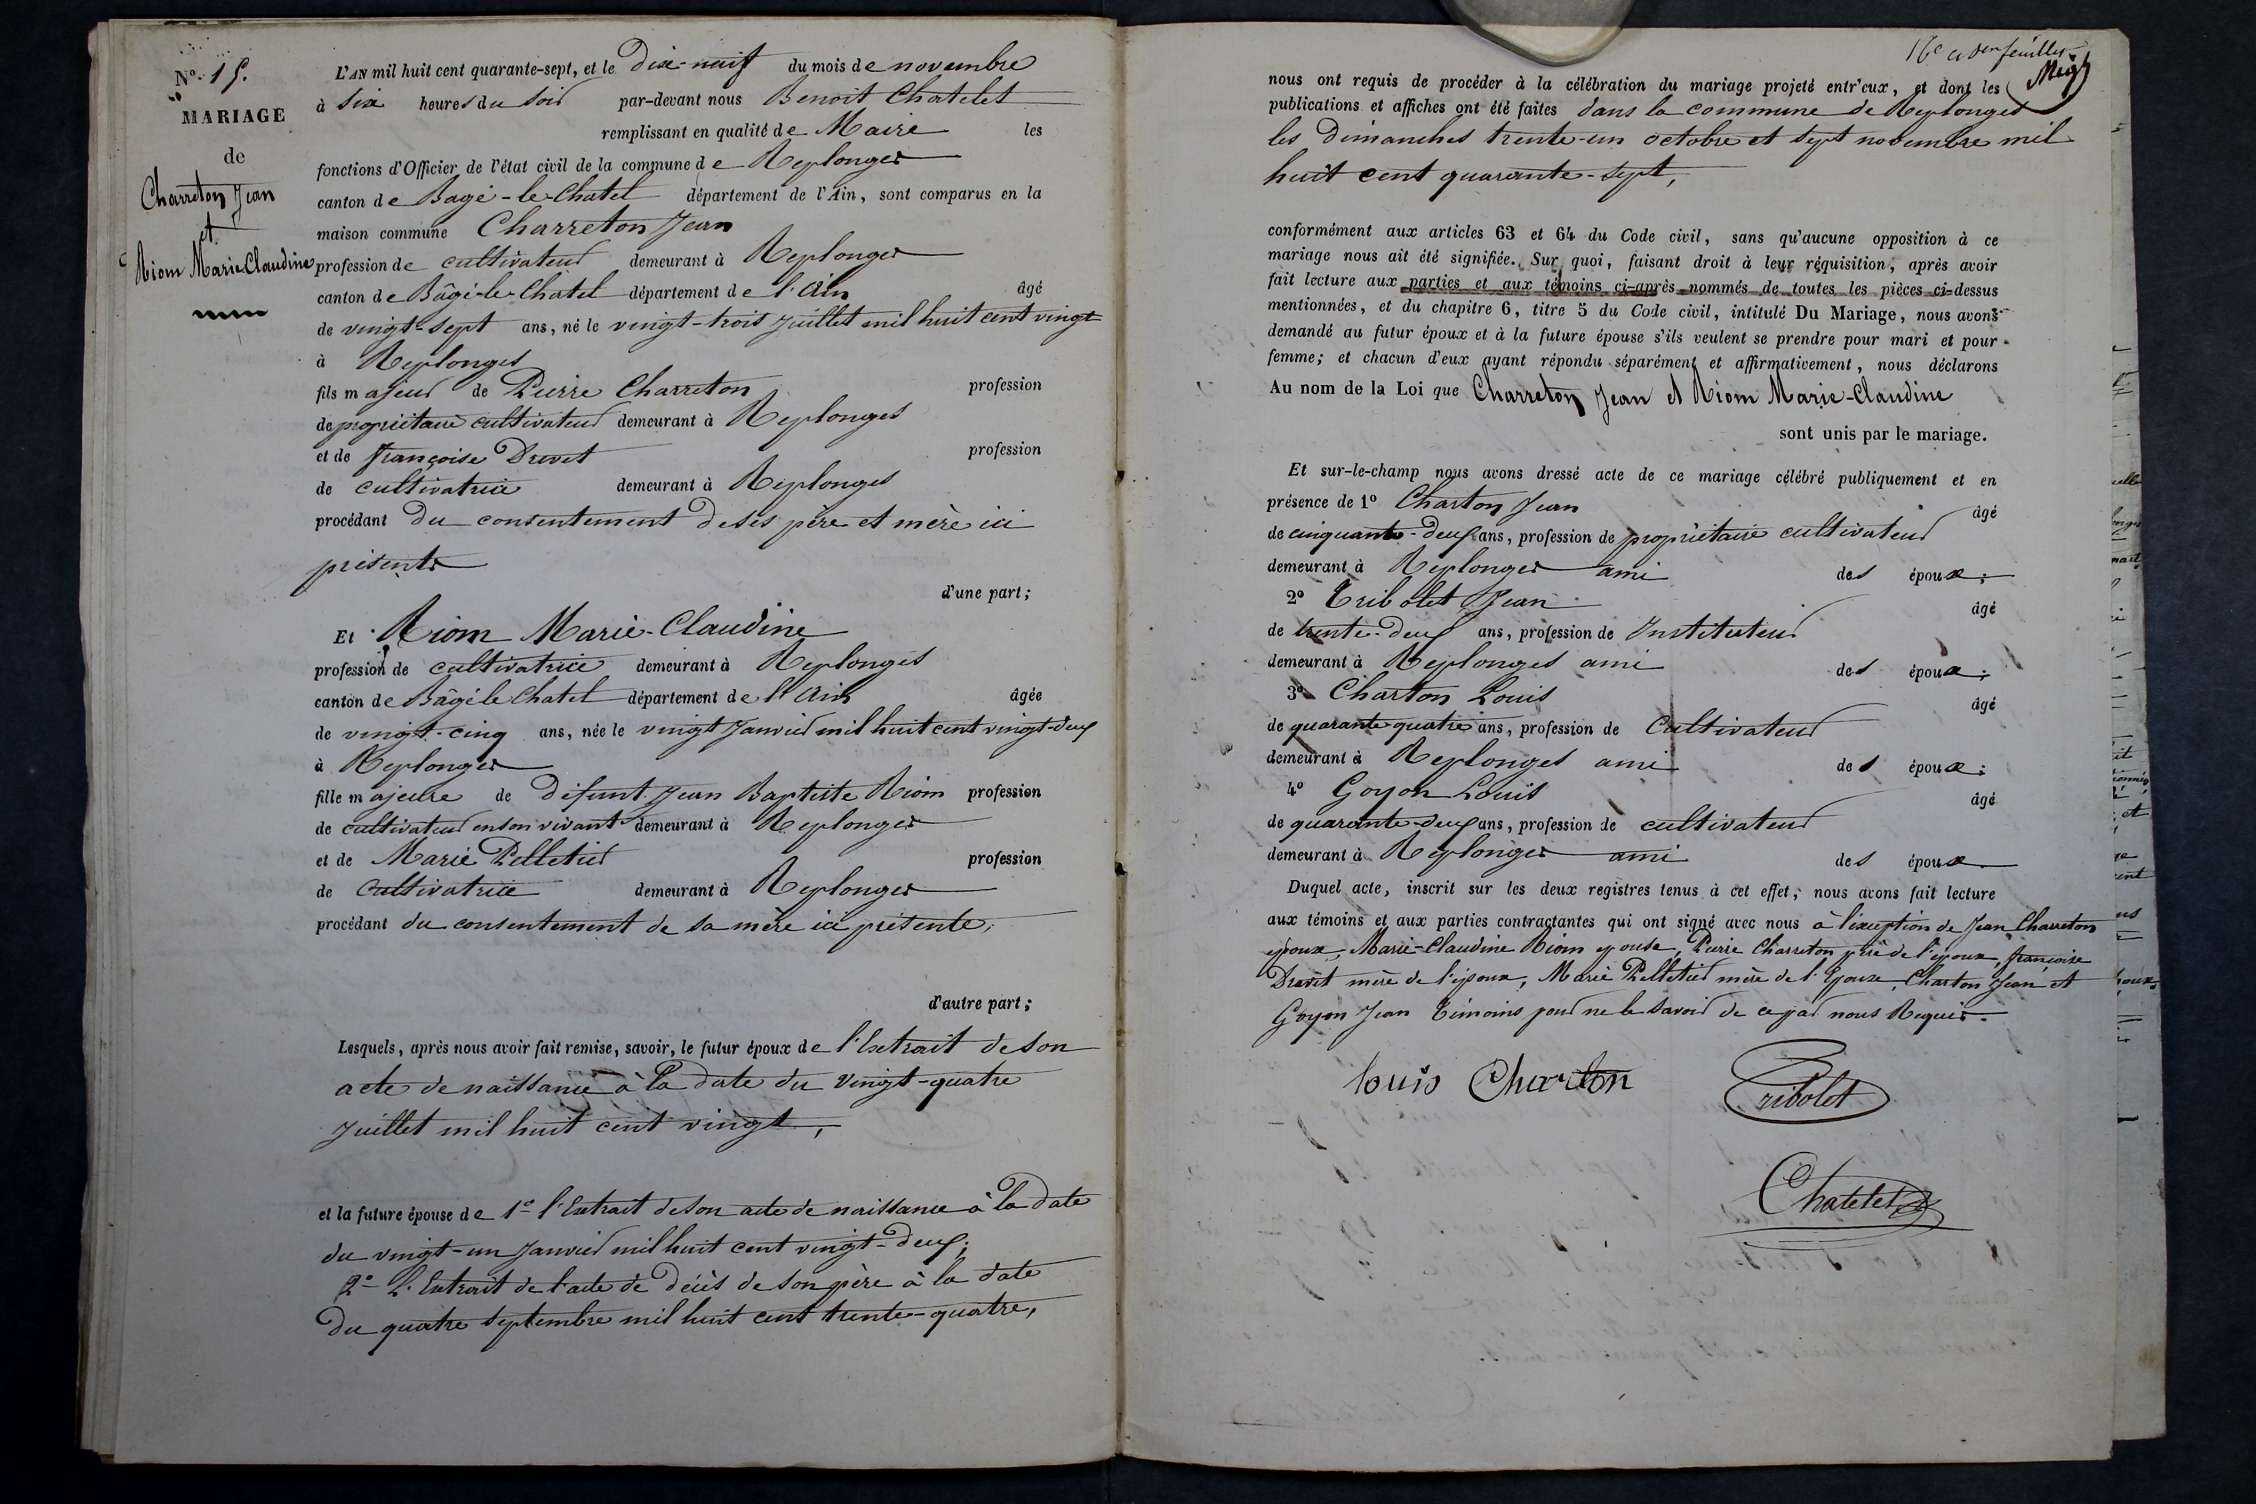 N.º 15.
MARIAGE
de
Charreton Jean
et
Riom Marie Claudine
L'AN mil huit cent quarante-sept, et le dix-neuf du mois de novembre
à six heures du soir par-devant nous Benoit Chatelet
remplissant en qualité de Maire les
fonctions d'Officier de l'état civil de la commune de Replonges
canton de Bagé-le-Chatel département de l'Ain, sont comparus en la
maison commune Charreton Jean
profession de cultivateur demeurant à Replonges
canton de Bâgé-le-Chatel département de l'Ain âgé
de vingt-sept ans, né le vingt-trois Juillet mil huit cent vingt
à Replonges
fils majeur de Pierre Charreton profession
de propriétaire cultivateur demeurant à Replonges
et de françoise Drevet profession
de cultivatrice demeurant à Replonges
procédant du consentement de ses père et mère ici
présents
d'une part;
Et Riom Marie-Claudine
profession de cultivatrice demeurant à Replonges
canton de Bâgé le Chatel département de l'Ain âgée
de vingt-cinq ans, née le vingt Janvier mil huit cent vingt-deux
à Replonges
fille majeure de défunt Jean Baptiste Riom profession
de cultivateur en son vivant demeurant à Replonges
et de Marie Pelletier profession
de Cultivatrice demeurant à Replonges
procédant du consentement de sa mère ici présente,
d'autre part;
Lesquels, après nous avoir fait remise, savoir, le futur époux de l'Extrait de son
acte de naissance à la date du vingt-quatre
Juillet mil huit cent vingt,
et la future épouse de 1º l'Extrait de son acte de naissance à la date
du vingt-un Janvier mil huit cent vingt-deux;
2º L'Extrait de l'acte de décès de son père à la date
du quatre septembre mil huit cent trente-quatre,
16e et der feuillet
nous ont requis de procéder à la célébration du mariage projeté entr'eux, et dont les
publications et affiches ont été faites dans la commune de Replonges
les dimanches trente-un octobre et sept novembre mil
huit cent quarante-sept,
conformément aux articles 63 et 64 du Code civil, sans qu'aucune opposition à ce
mariage nous ait été signifiée. Sur quoi, faisant droit à leur réquisition, après avoir
fait lecture aux parties et aux témoins ci-après nommés de toutes les pièces ci-dessus
mentionnées, et du chapitre 6, titre 5 du Code civil, intitulé Du Mariage, nous avons
demandé au futur époux et à la future épouse s'ils veulent se prendre pour mari et pour
femme; et chacun d'eux ayant répondu séparément et affirmativement, nous déclarons
Au nom de la Loi que Charreton Jean et Riom Marie-Claudine
sont unis par le mariage.
Et sur-le-champ nous avons dressé acte de ce mariage célébré publiquement et en
présence de 1º Charton Jean âgé
de cinquante-deux ans, profession de propriétaire cultivateur
demeurant à Replonges ami des époux;
2º Tribolet Jean âgé
de trente-deux ans, profession de Instituteur
demeurant à Replonges ami des époux;
3º Charton Louis âgé
de quarante quatre ans, profession de Cultivateur
demeurant à Replonges ami des époux;
4º Goyon Louis âgé
de quarante-deux ans, profession de cultivateur
demeurant à Replonges ami des époux
Duquel acte, inscrit sur les deux registres tenus à cet effet, nous avons fait lecture
aux témoins et aux parties contractantes qui ont signé avec nous à l'exception de Jean Charreton
époux, Marie-Claudine Riom épouse, Pierre Charreton père de l'époux, françoise
Drevet mère de l'époux, Marie Pelletier mère de l'Epouse, Charton Jean et
Goyon Jean Témoins pour ne le savoir de ce par nous Requis.
Louis Charton
Tribolet
Chatelet